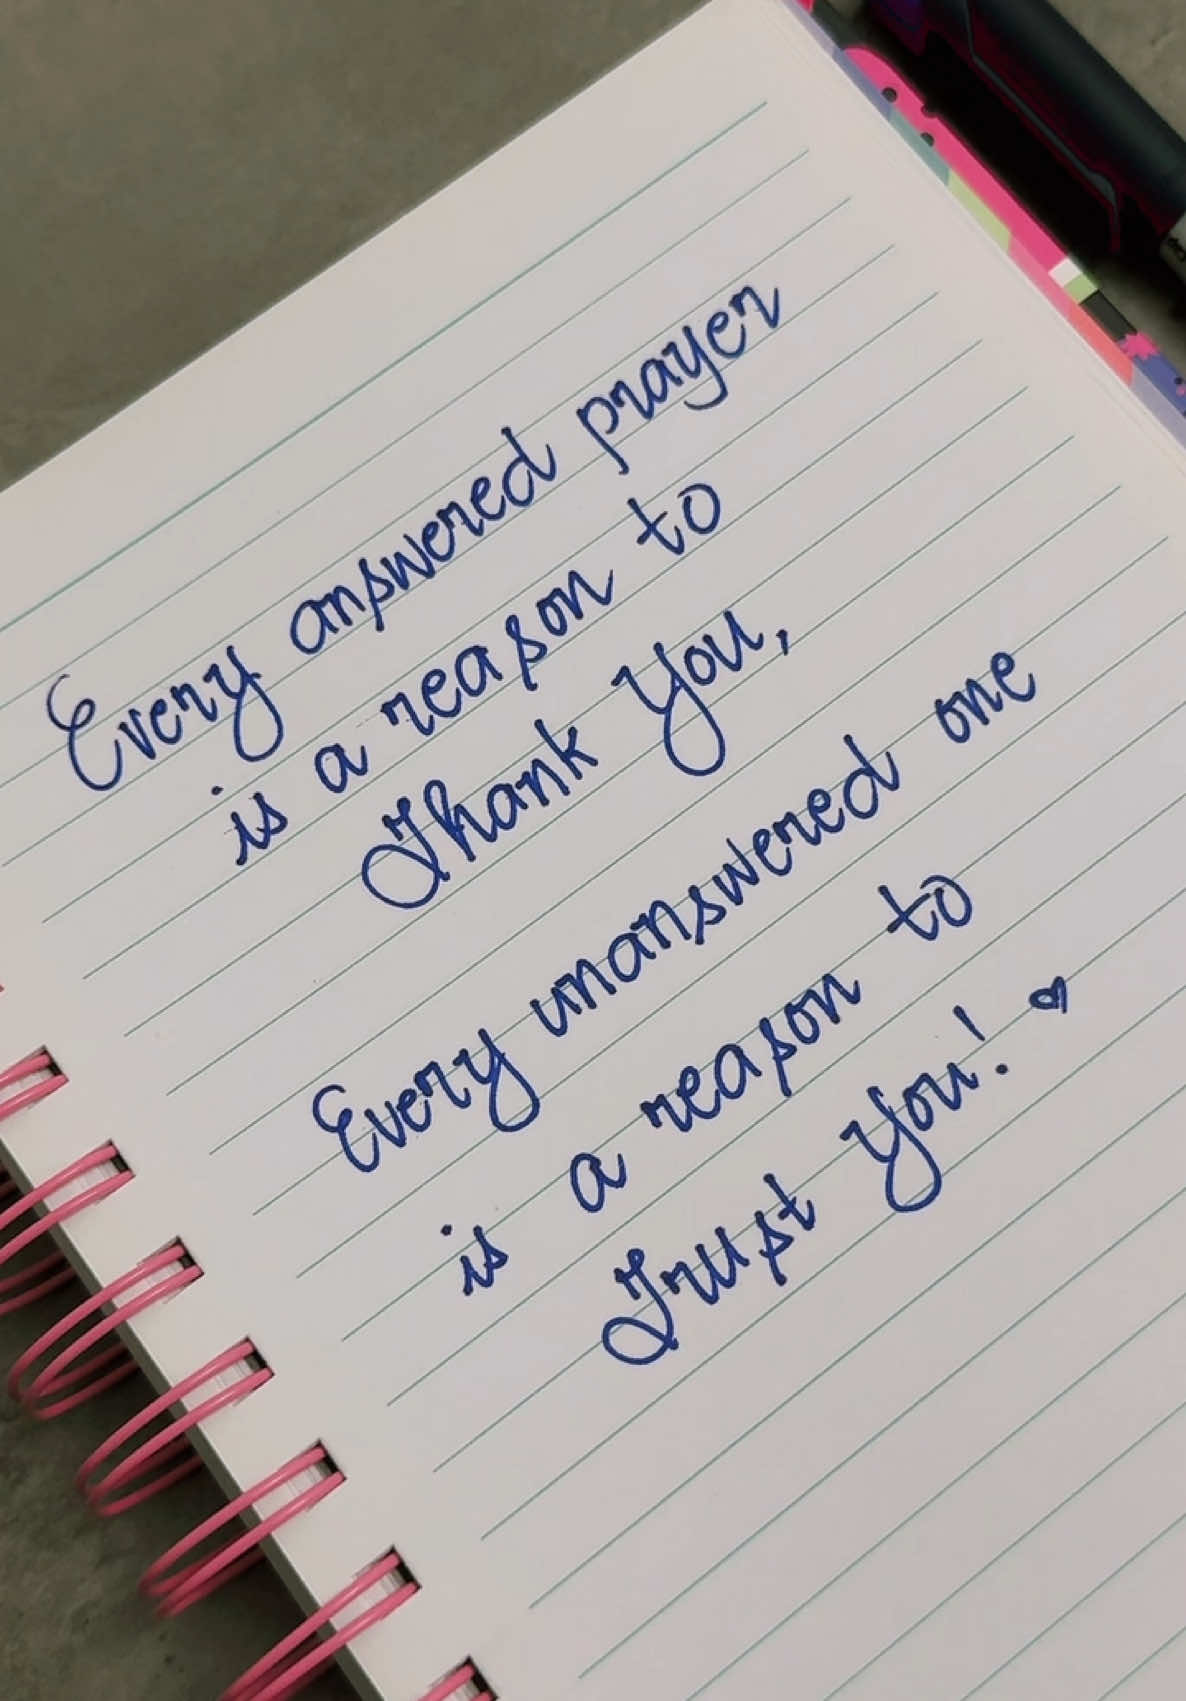 Every answered prayer
is a reason to
Thank You,
Every unanswered one
is a reason to
Trust You! ♥